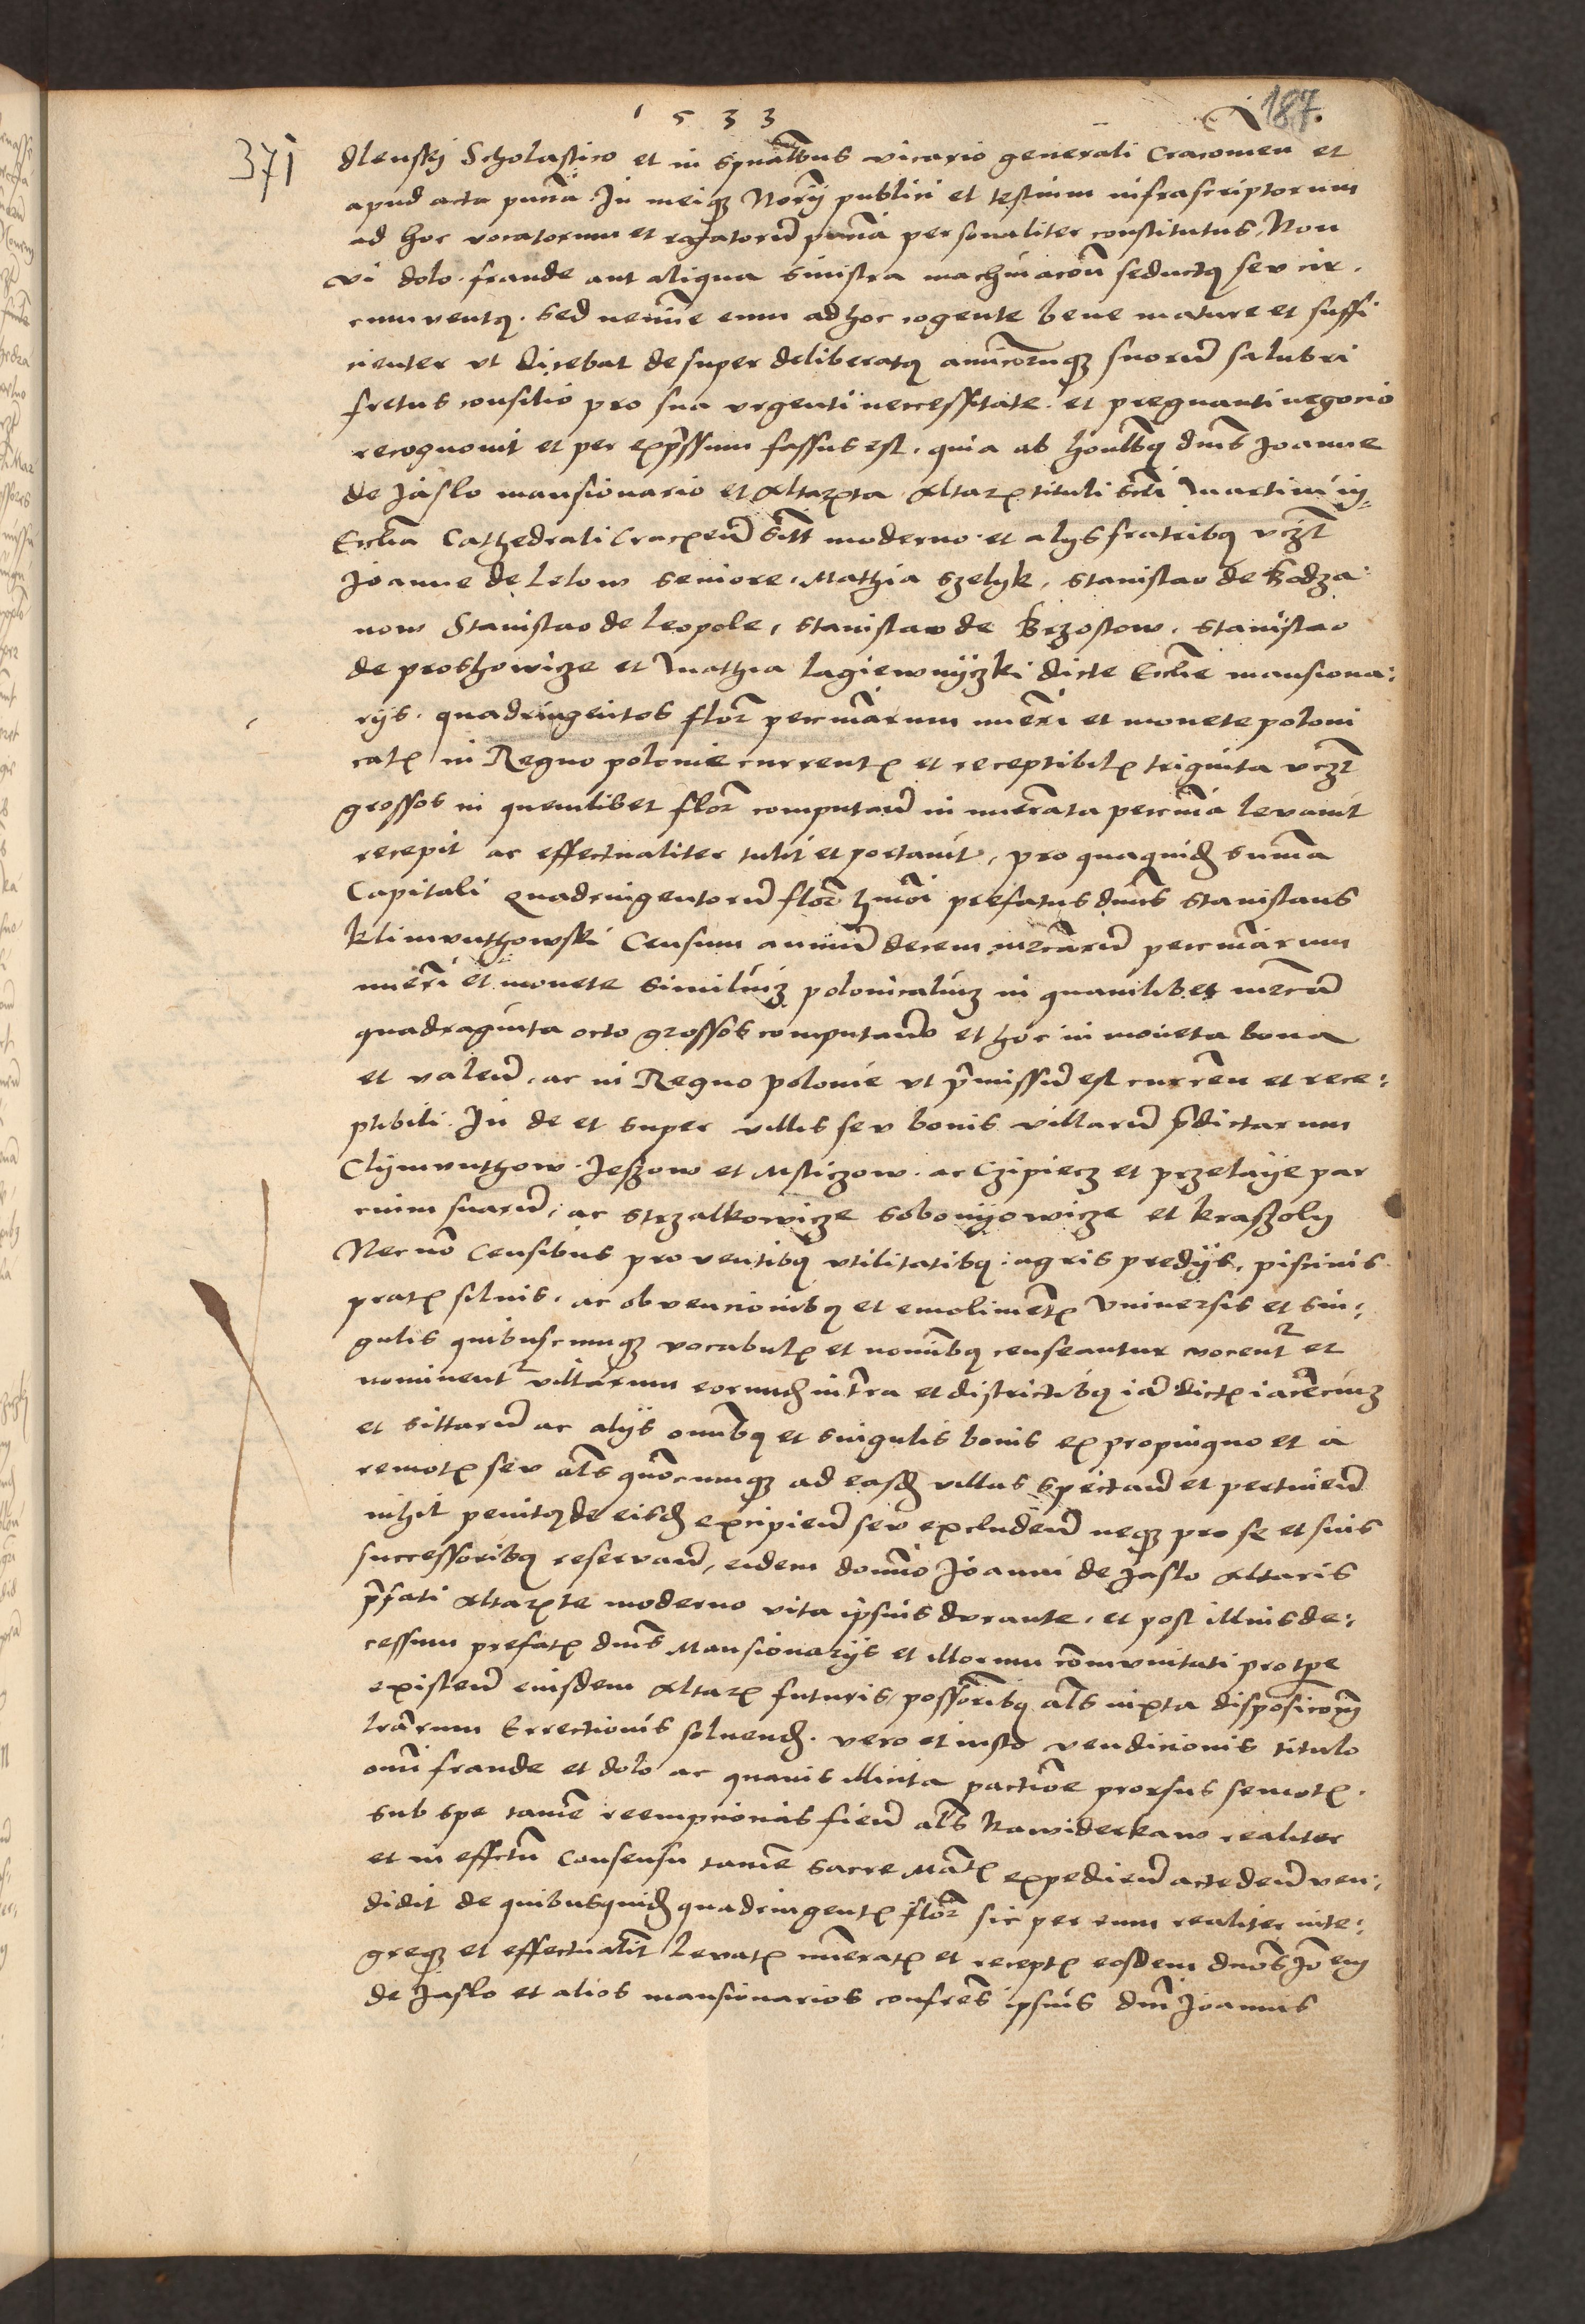 1533
187.
371
dlenskj Scholastico et in spualibus vicario generali Cracouien et
apud acta punā. In meiqz Norij publici et testium infrascriptorum
ad hoc vocatorum et rogatorū pnciā personaliter constitutus, Non
vi dolo. fraude aut aliqua sinistra machinacōn seductq seu cir.
cumuentq. sed nemine eum ad hoc cogente bene mature et suffi
cienter vt dicebat desuper deliberatq amicorumqz suorū salubri
fretus consilio pro sua vrgenti necessitate. et pregnanti negocio
recognouit et per expressum fassus est. quia ab honlibq dnis Joanne
de Jaslo mansionario et Altarista Altaris tituli scti Martini in
Ecclia Cathedrali Cracouien sitt moderno. et alijs fratribq vczt
Joanne de Lelow seniore. Mathia Szelyk, Stanislao de Bodza
now Stanislao de Leopole, Stanislao de Brzostow. Stanislao
de proshowicze et Mathia lagiewnijczki dicte Ecclie mansiona:
rijs. quadringentos flor pecuniarum numeri et monete poloni
calis in Regno polonie currentis et receptibilis triginta vczt
grossos in quemlibet flor computañ in numerata pecunia leuauit
recepit ac effectualiter tulit et portauit, pro quaquidem summa
Capitali Quadringentorū flor hmoi prefatus dnus Stanislaus
klimunthowski Censum annuū decem mrcarū pecuniarum
numeri et monete similiuz polonicaliuz in quamlibet mrcam
quadraginta octo grossos computando et hoc in moneta bona
et valeñ. ac in Regno polonie vt pmissum est curreñ et rece:
ptibili. In de et super villis seu bonis villarū pdictarum
Clijmunthow. Jeszow et Msticzow. ac Czipiecz et przelaije par
cium suarū, ac Strzalkowicze Sobonijowicze et kraszoly
Necnō Censibus prouentibq vtilitatibq. agris predijs, piscinis
pratis siluis. ac obuencionibq et emolimētis vniuersis et sin:
gulis quibuscumqz vocabulis et nominibq censeantur vocent et
nominent villarum eorundem intra et districtibq iam dictis iacenciuz
et sittarū ac alijs omnibq et singulis bonis ex propinquo et a
remotis seu als quōcumqz ad easdem villas spectañ et pertineñ
nihil penitq de eisdem excipieñ seu excludeñ neqz pro se et suis
successoribq reseruañ, eidem domino Joanni de Jaslo Altaris
pfati Altariste moderno vita ipsius durante. et post illius de:
cessum prefatis dnis Mansionarijs et illorum cōmunitati pro tpe
existeñ eiusdem Altaris futuris possoribq als iuxta disposiconem
lrarum Errectionis soluend. vero et iusto vendicionis titulo
omi fraude et dolo ac quauis illicita pactione prorsus semotis.
sub spe tamē reempcionis fieñ als kawiderkaw realiter
et in effctum consensu tame sacre Matis expedieñ accedeñ ven:
didit de quibusquidem quadringentis flor sic per eum realiter inte:
greqz et effectualit leuatis numeratis et receptis eosdem dnos Joem
de Jaslo et alios mansionarios confres ipsius dni Joannis